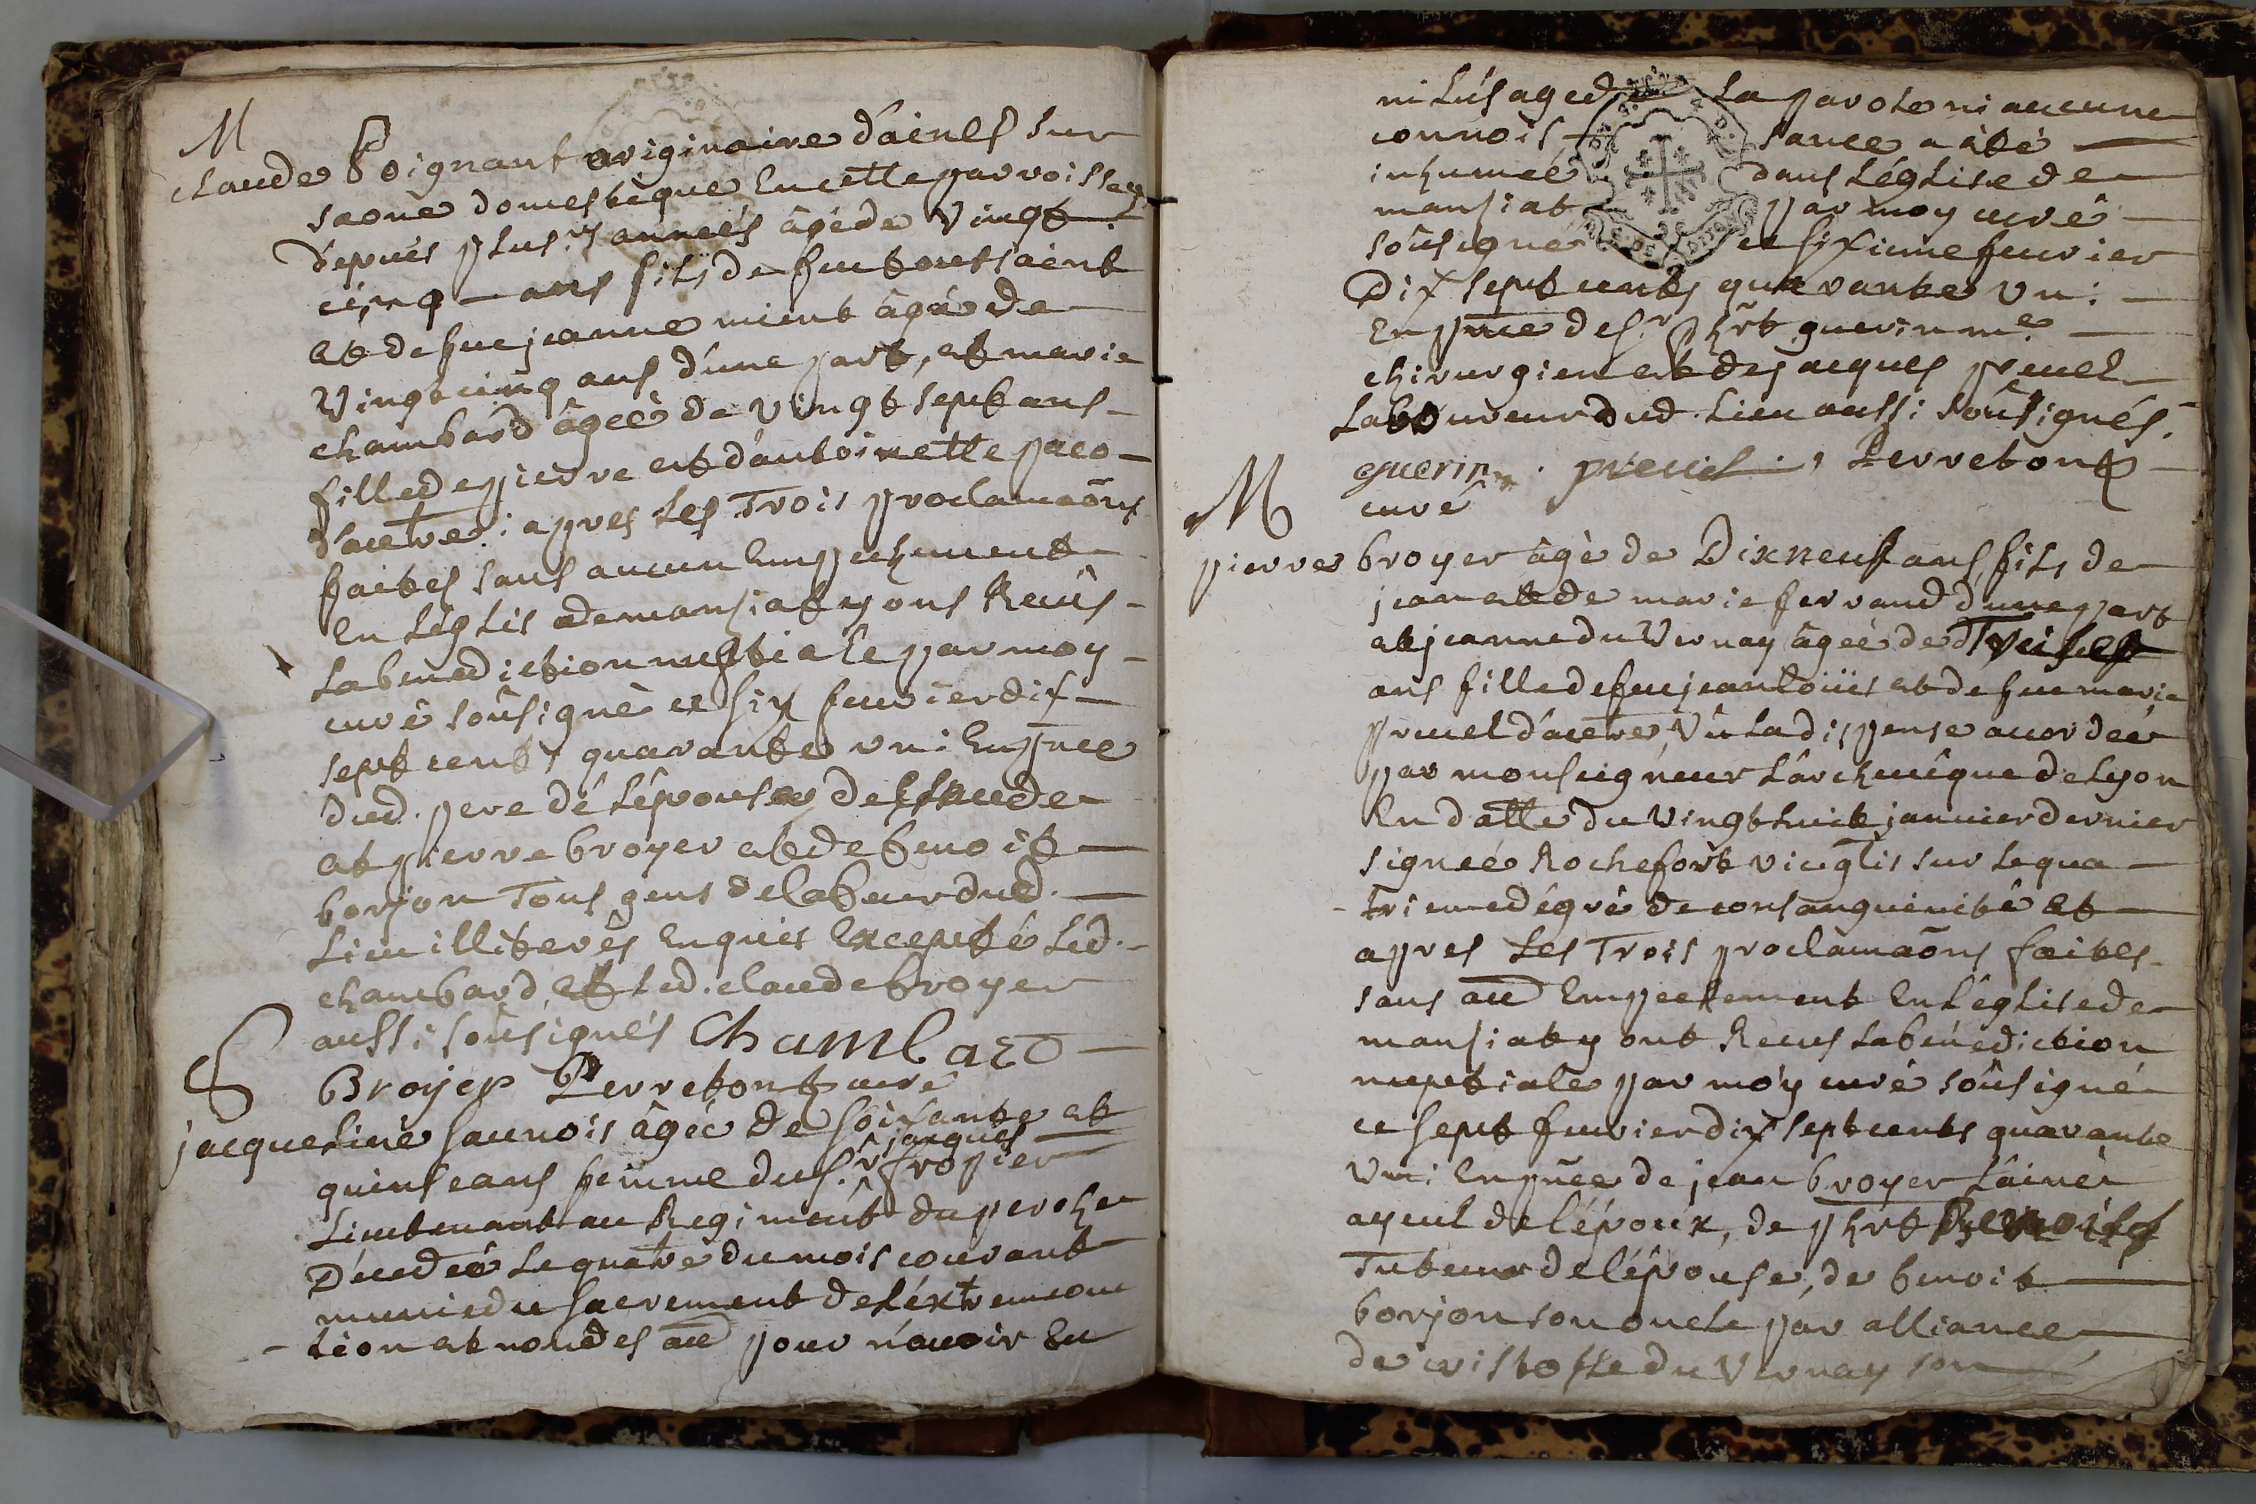 M
claude Poignant originaire d'aines sur
saone domestique En cette parroisse
depuis plus.rs années âgé de vingt
cinq ans fils de feu toussaint
et de feue jeanne mient âgé de
vingt cinq ans d'une part, et marie
chambard âgéé de vingt sept ans
fille de pierre et d'antoinette paco
d'autre : apres les Trois proclamaõns
faites sans aucun Empechement
En l'églis de mansiat y ons Recûs
la benediction nuptiale par moy
curé soûsigné ce six fevrier dix
sept cents quarante un : En pnce
dud. pere de l'épouse de claude
et pierre broyer et de benoit
borjon Tous gens de labeur dud.
lieu illiterés Enquis Excepté led.
chambard, et led. claude broyer
aussi soûsignés Chambard
Broyer Perreton curé
S
jacqueline saunois âgéé de soixante et
jacques
quinse ans femme du S.r fropier
Lieutenant au Regiment du perche
Décedéé le quatre du mois courant
munie du sacrement de l'éxtremeonc
tion et non des au pour n'avoir Eu
ni l'usage de la parole ni aucune
connois sance a été
inhumeé dans l'église de
mansiat par moy curé
soûsigné ce sixieme fevrier
Dix sept cents quarante un :
En pnce de S.r phrt guerin me
chirurgien et de jacques pruel
laboureur dud. lieu aussi soûsignés.
guerin . preuel . Perreton
curé
M
pierre broyer âgé de Dixneuf ans fils de
jean et de marie ferrand d'une part
et jeanne du Vernay âgéé de Treises
ans fille de feu jean loüis et de feue marie
pruel d'autre, Vû la dispense accordéé
par monseigneur l'archevêque de lyon
En datte du vingt huit janvier dernier
signéé Rochefort vic glis sur le qua
triemedégré de consanguinité et
apres les Trois proclamaõns faites
sans au Empechement En l'église de
mansiat y ont Recus la bénediction
nuptiale par moy curé soûsigné
ce sept fevrier dix sept cents quarante
Un : En pñce de jean broyer l'ainé
ayeul de l'époux, de phrt
Tuteur de l'épouse, de benoit
borjon son oncle par alliance
de cristofle du Vernay son